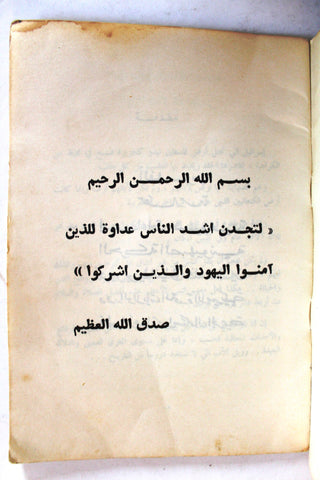 بسم الله الرحمن الرحيم
« لتجدن اشد الناس عداوة للذين
آمنوا اليهود والذين اشركوا »
صدق الله العظيم